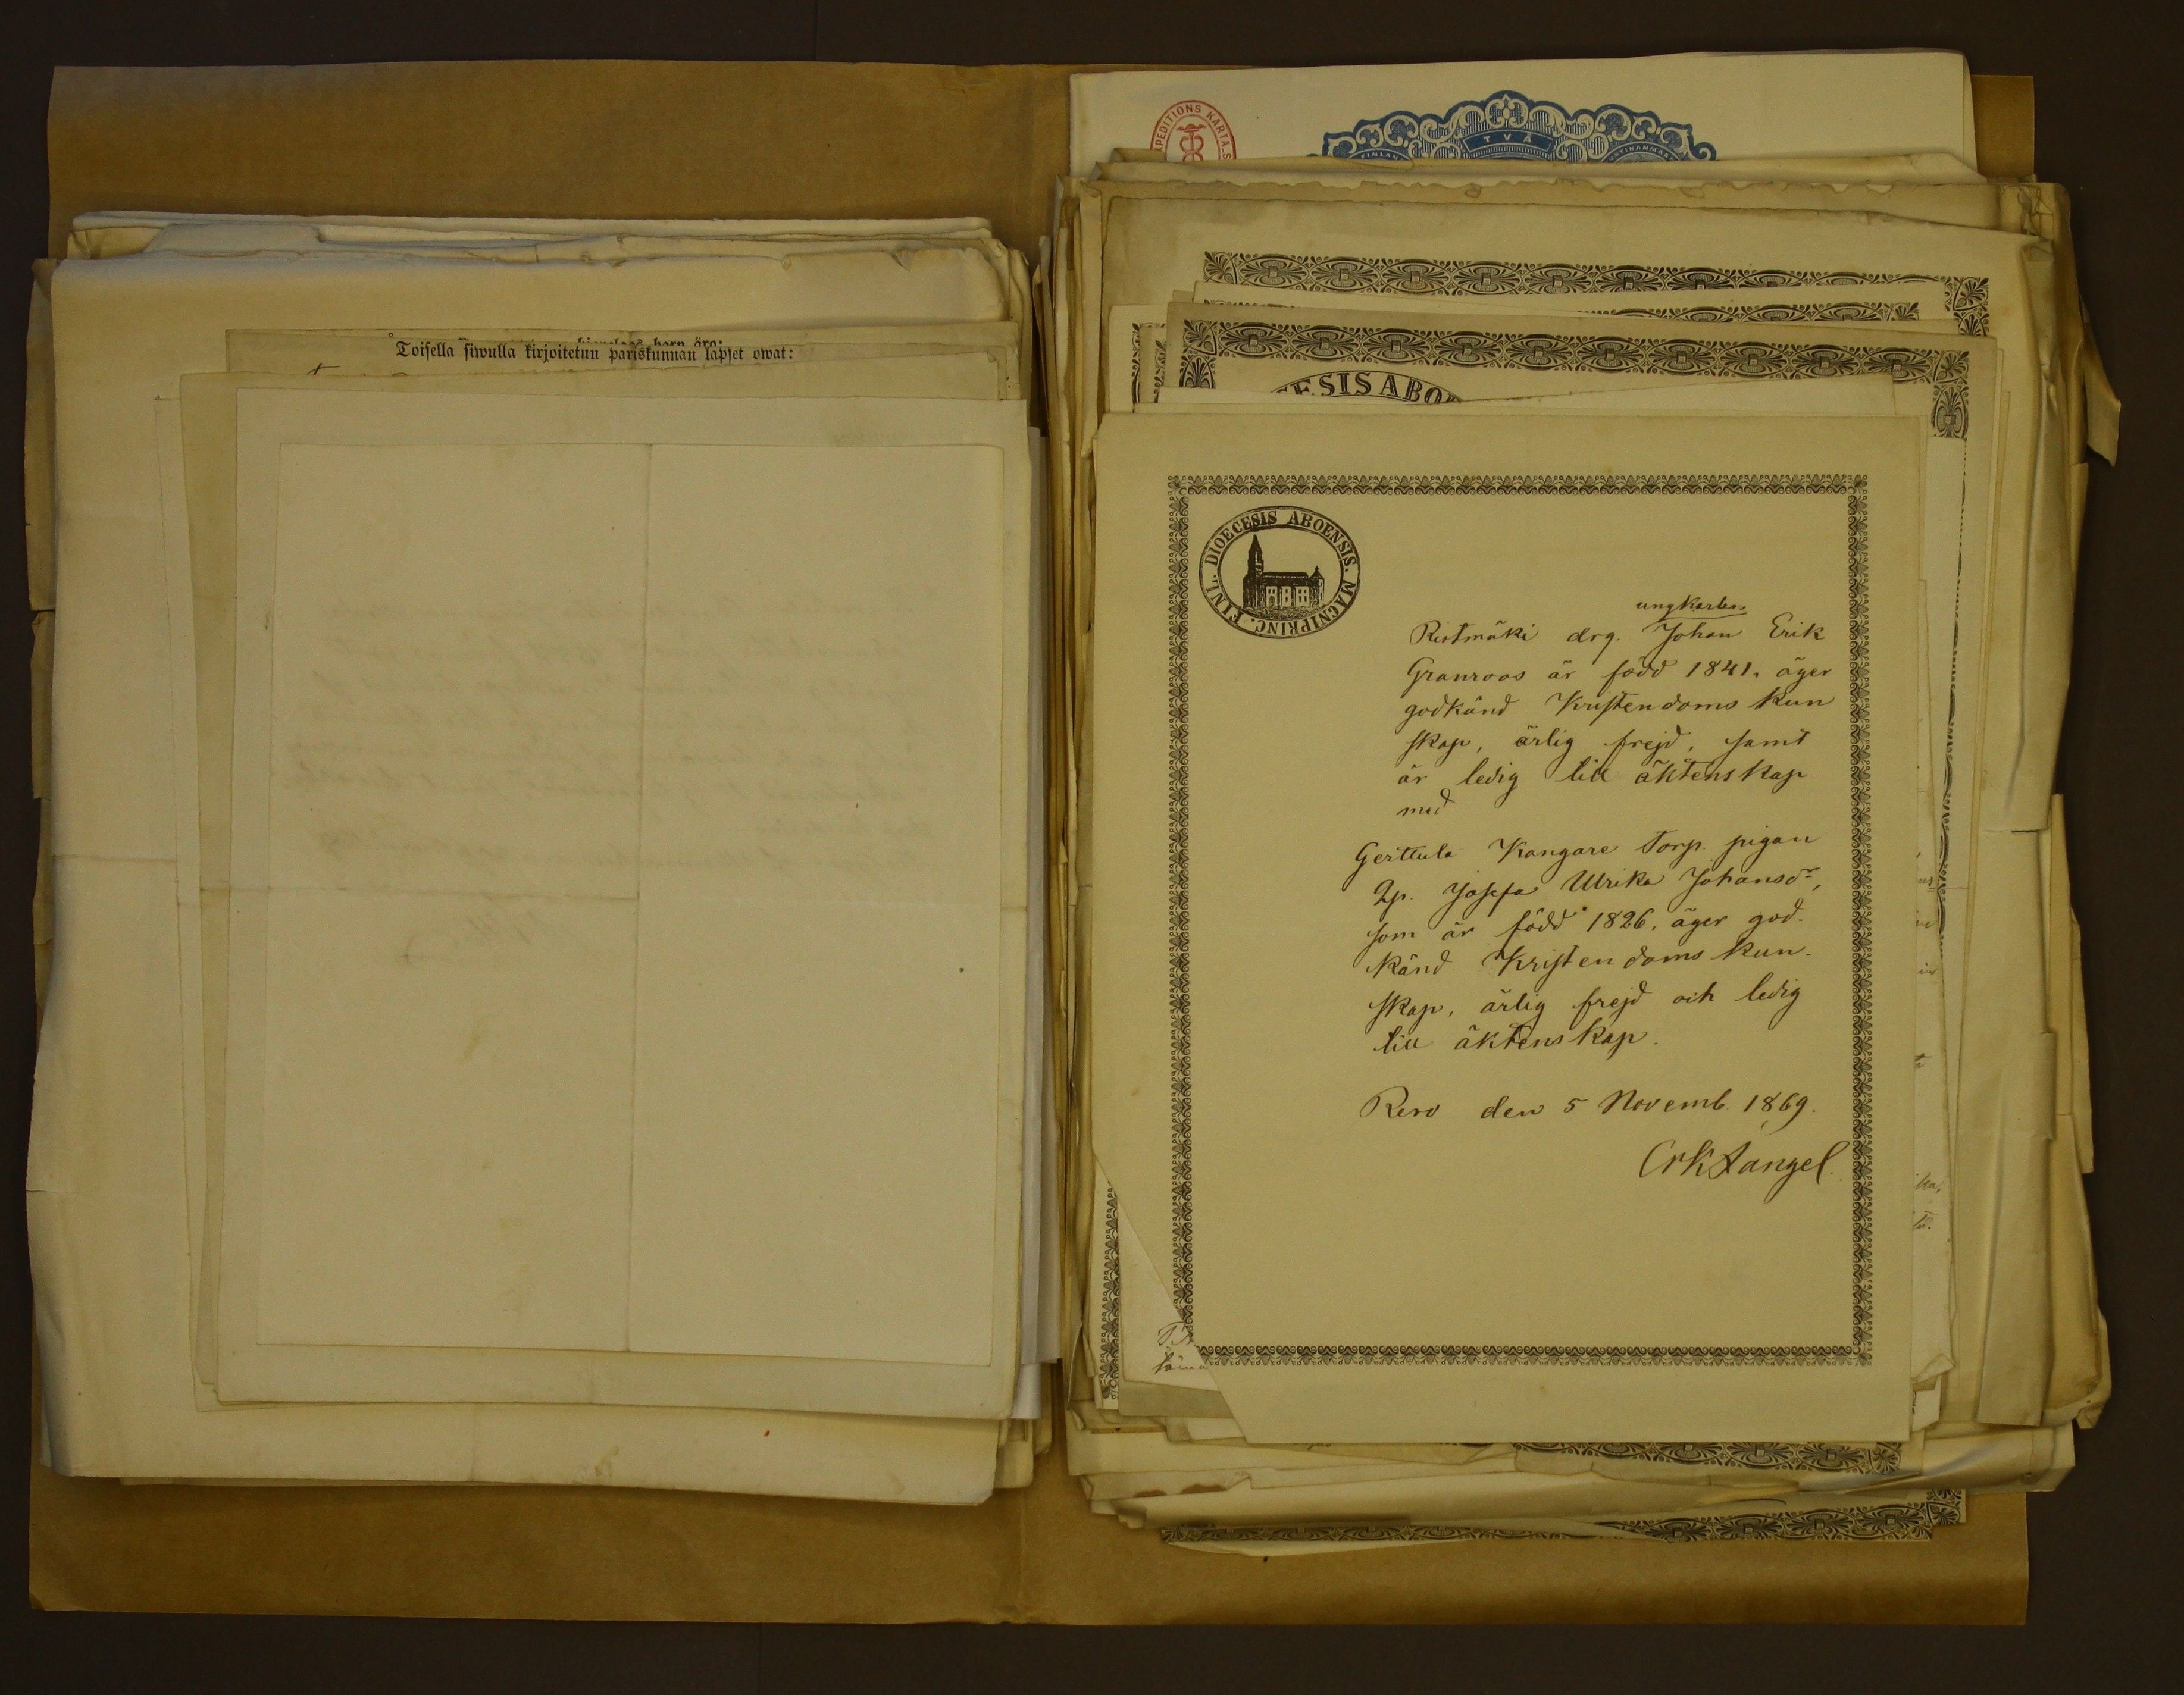 EXPEDITIONS KARTA.S
TVÅ
FINLAN
Toisella siwulla kirjoitetun pariskunnan lapset owat:
ESIS ABO
DIOECESIS ABOENSIS. MAGNIPRINC. FINL.
ungkarlen
Ristmäki drg. Johan Erik
Granroos är född 1841, äger
godkänd Kristendoms kun
skap, ärlig frejd, samt
är ledig till äktenskap
med
Gerttula Kangare torp. pigan
Qp. Josefa Ulrika Johansdr,
som är född 1826, äger god-
känd Kristendoms kun-
skap, ärlig frejd och ledig
till äktenskap.
Revo den 5 Novemb. 1869.